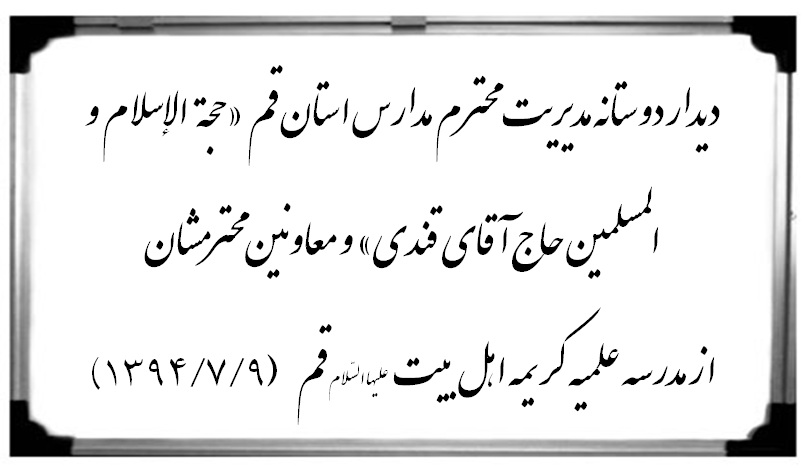 دیدار دوستانه مدیریت محترم مدارس استان قم «حجة الإسلام و
المسلمین حاج آقای قندی» و معاونین محترمشان
از مدرسه علمیه کریمه اهل بیت علیها السّلام قم (۱۳۹۴/۷/۹)